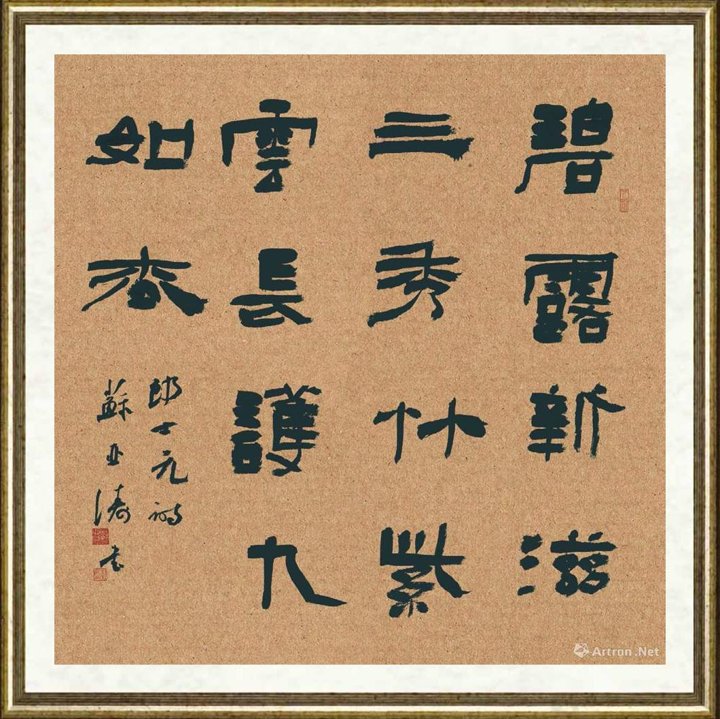 碧露新滋
三秀艸紫
雲長護九
如春
郎士元詩
蘇亚濤书
Artron.Net